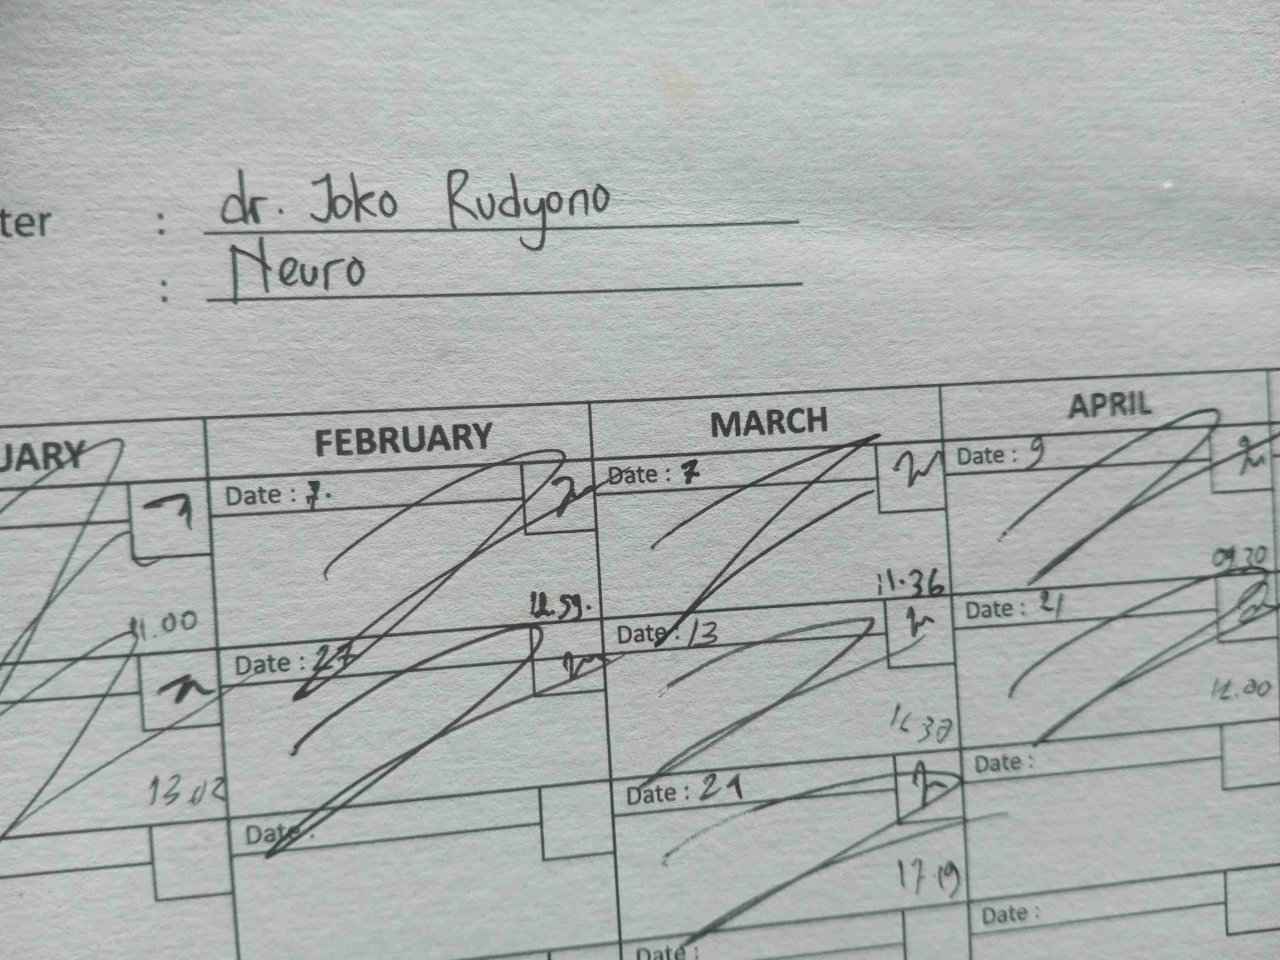 ter : dr. Joko Rudyono
: Neuro
UARY FEBRUARY MARCH APRIL
Date : 7. Date : 7 Date : 9
11.00 11.36 09.30
Date : 27 Date : 13 Date : 21
13.02
Date : Date : 21 Date :
17.19
Date : Date :